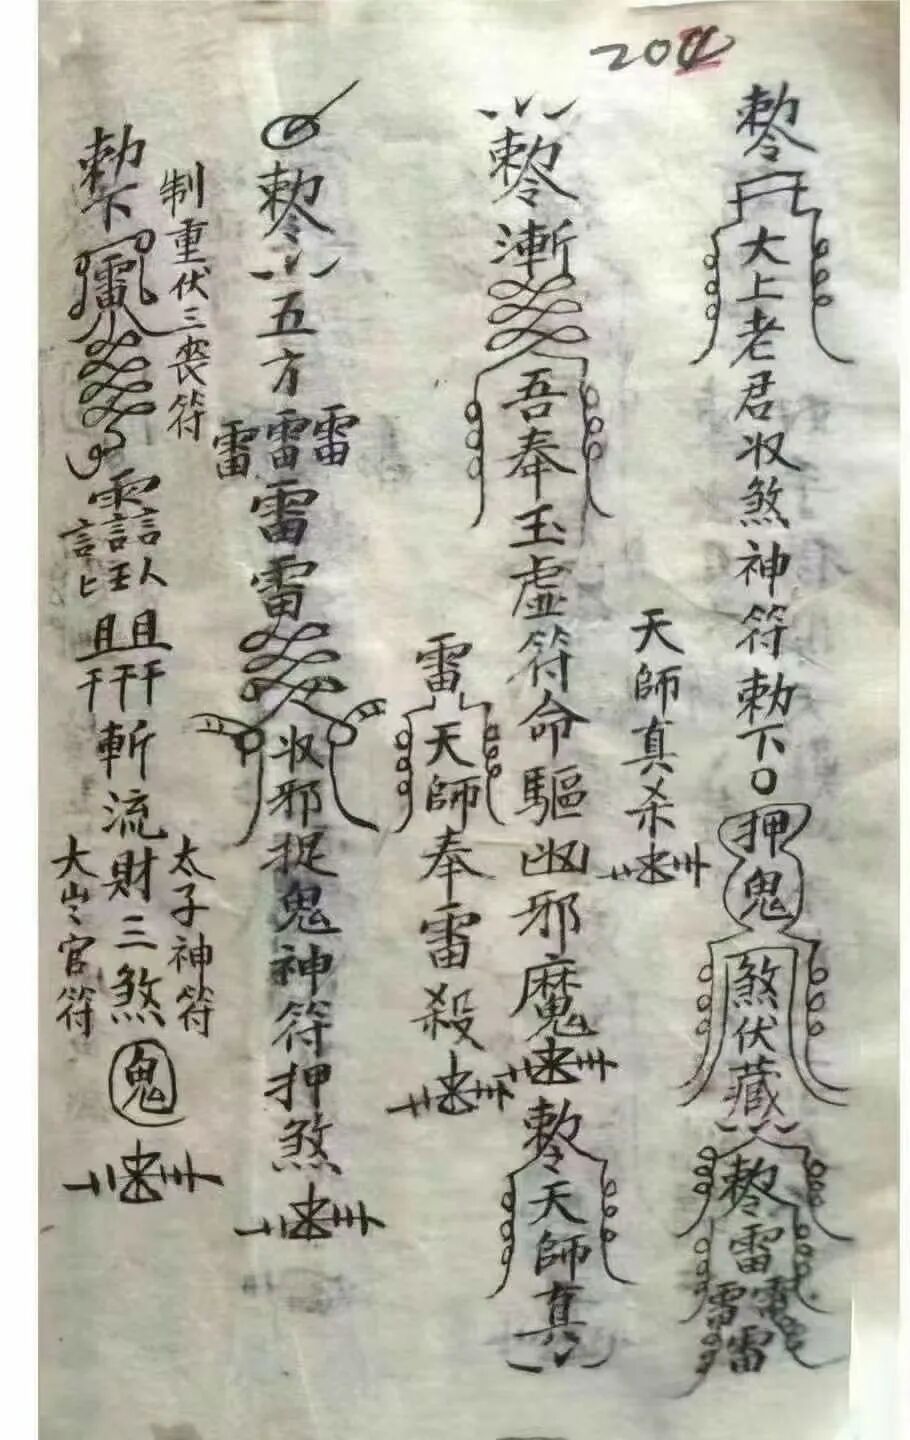 敕令
大上老君收煞神符勅下
押鬼
煞伏藏
敕令雷雷雷雷
天師真杀
敕令漸
吾奉玉虛符命驅凶邪魔
敕令天師真
雷天師奉雷殺
敕令五方
雷雷雷雷雷
收邪捉鬼神符押煞
制重伏三喪符
勅下
斬流財三煞
鬼
太子神符
官符